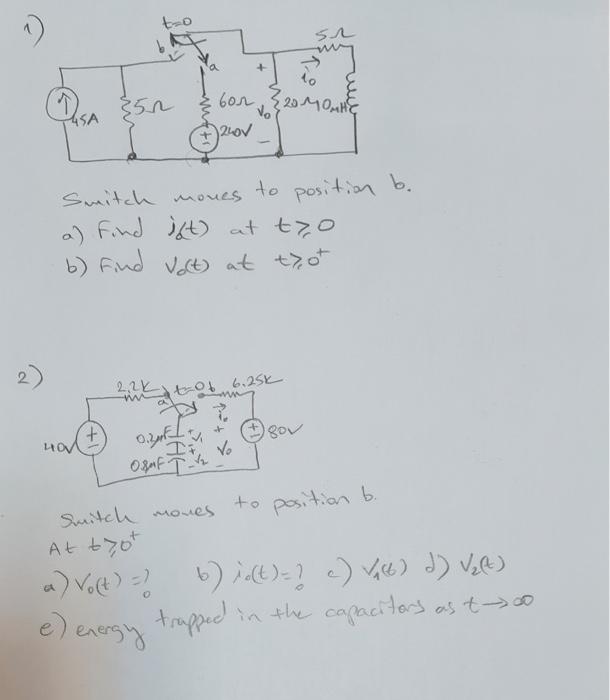 1)
t=0
b
a
5Ω
+
io
45A
5Ω
60Ω
Vo
20Ω
10mH
240V
-
Switch moves to position b.
a) Find io(t) at t≥0
b) Find Vo(t) at t≥0+
2)
2.2k
t=0
b
6.25k
a
io
40V
0.2μF
+
V1
-
+
Vo
-
80V
0.8μF
+
V2
-
Switch moves to position b.
At t≥0+
a) Vo(t)=? b) io(t)=? c) V1(t) d) V2(t)
e) energy trapped in the capacitors as t→∞